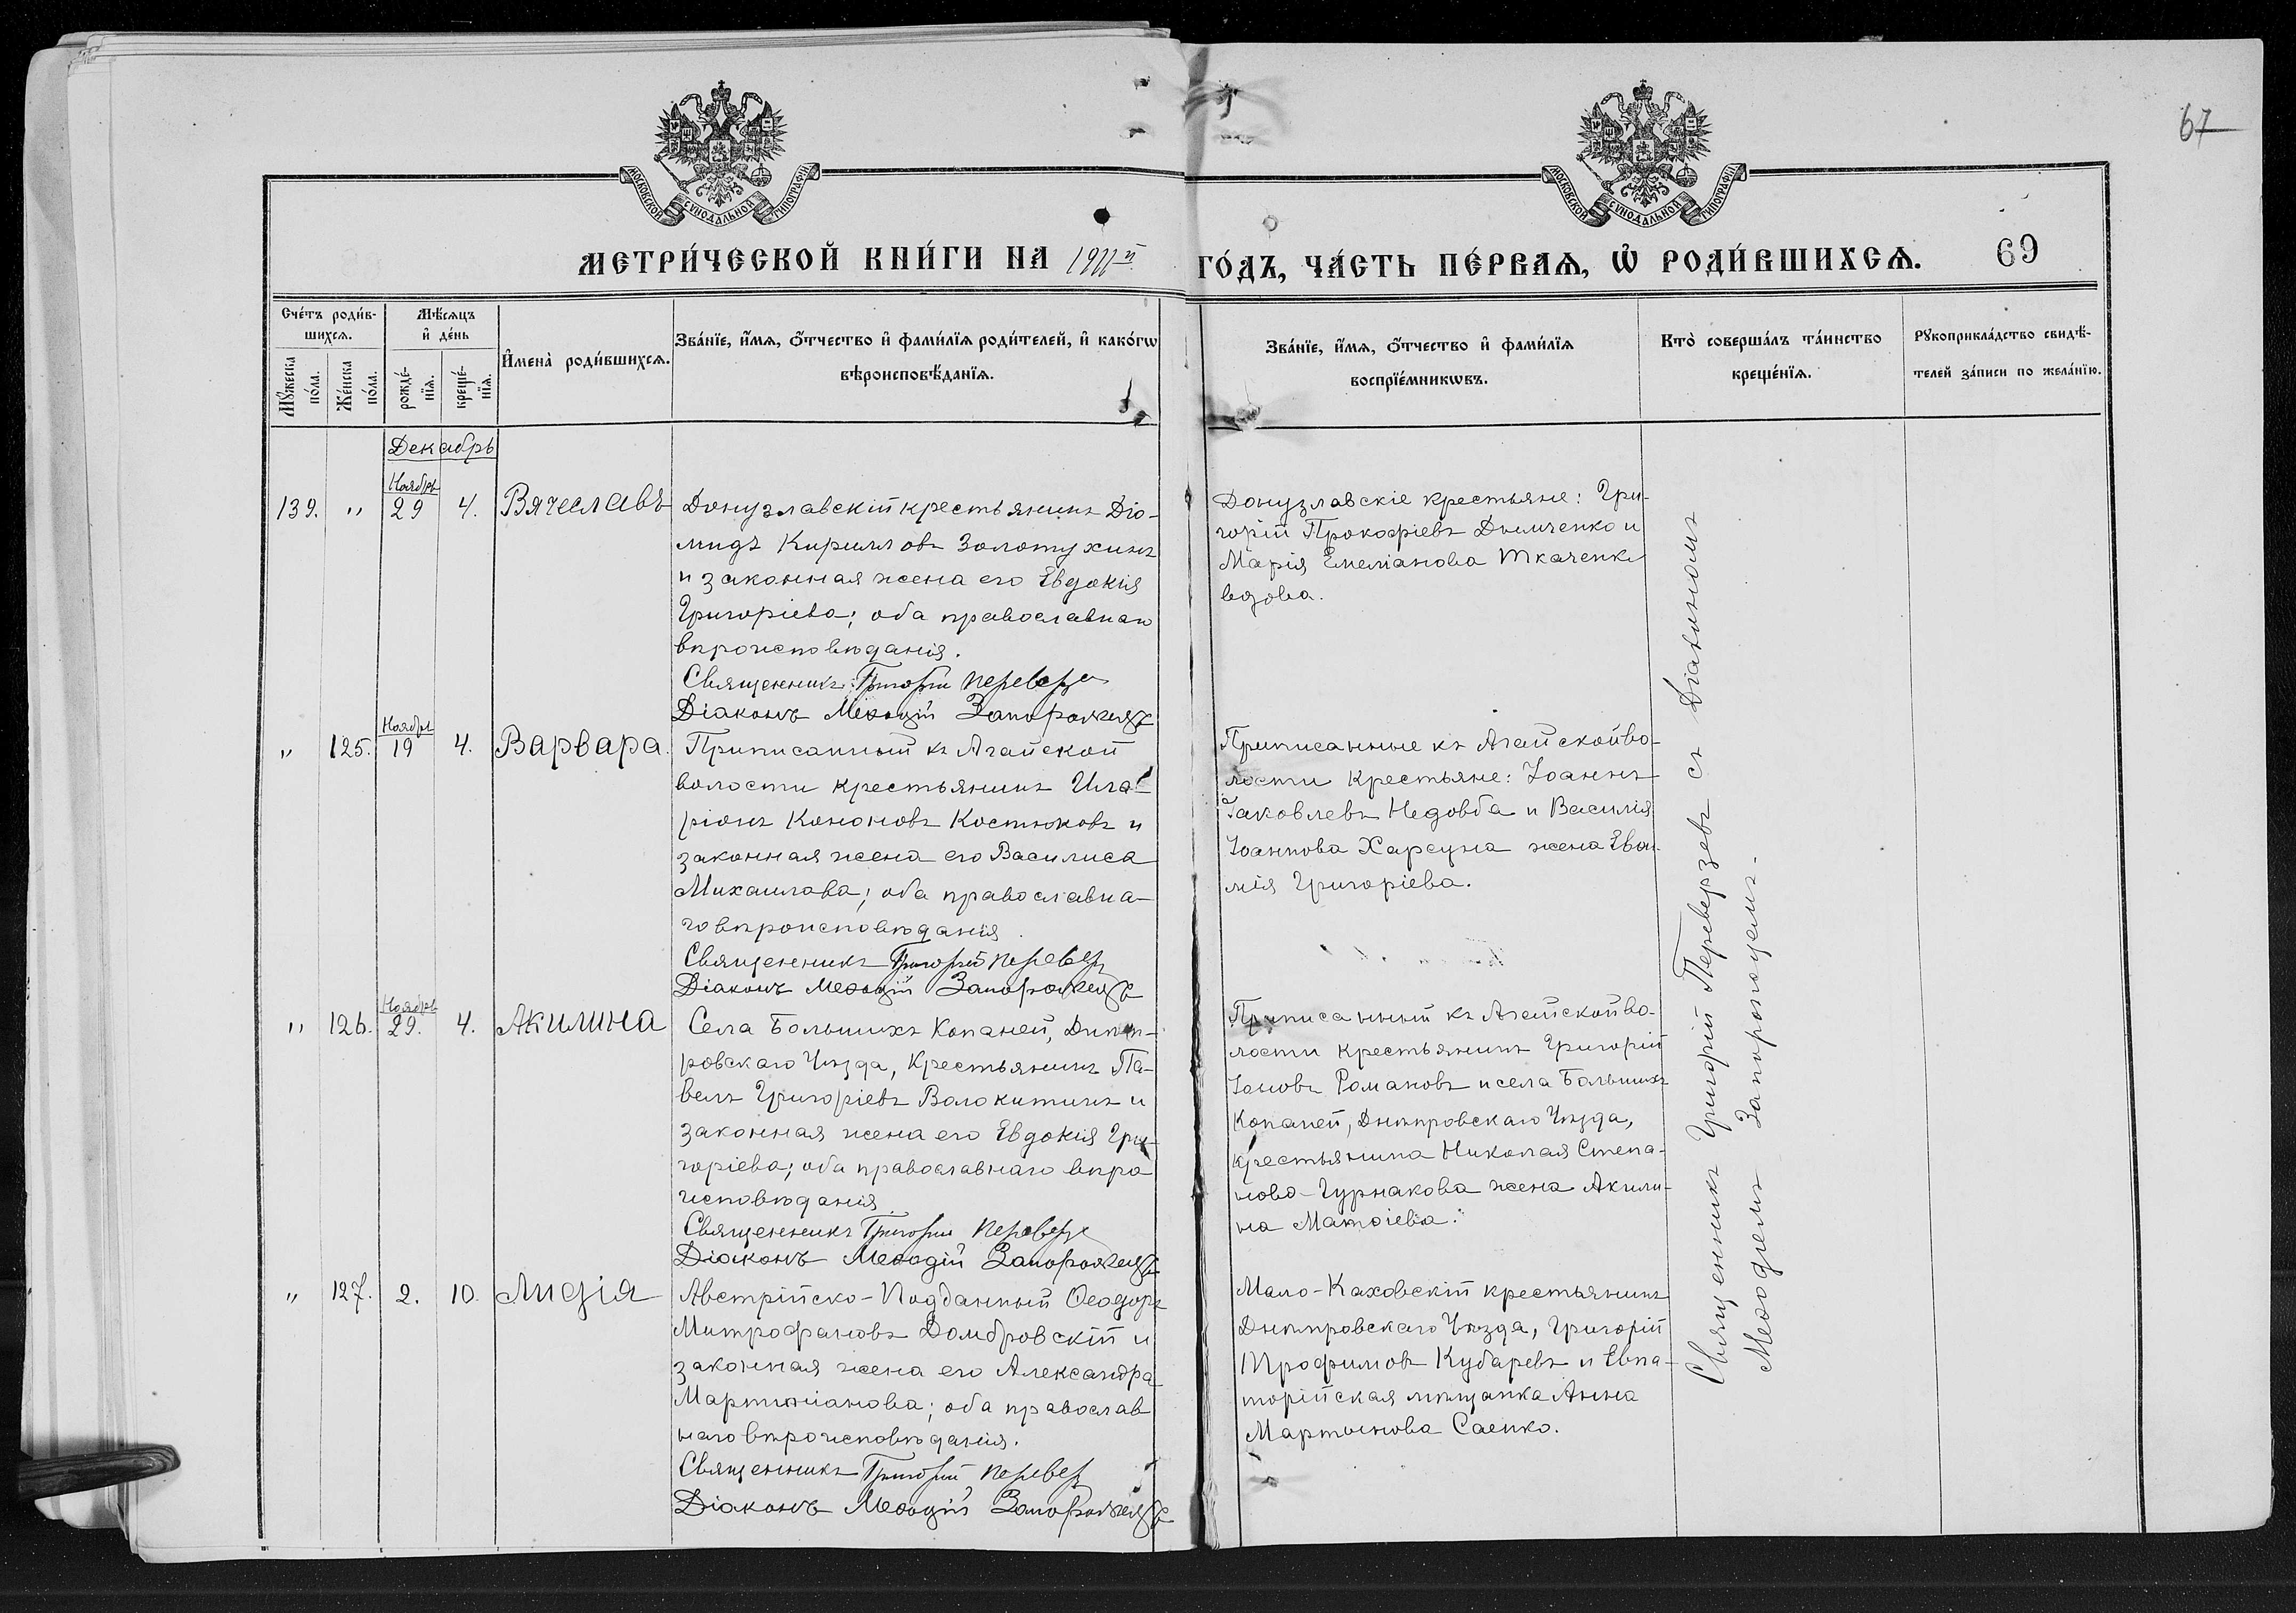 67
МОСКОВСКОЙ СѴНОДАЛЬНОЙ ТИПОГРАФІИ
МОСКОВСКОЙ СѴНОДАЛЬНОЙ ТИПОГРАФІИ
МЕТРИ́ЧЕСКОЙ КНИ́ГИ НА 1911й ГО́ДЪ, ЧА́СТЬ ПЕ́РВАѦ, Ѡ҆ РОДИ́ВШИХСѦ. 69
Сче́тъ роди́в-
шихсѧ.
Мꙋ́жеска
по́ла.
Же́нска
по́ла.
Мѣ́сѧцъ
и҆ де́нь
рожде́-
нїѧ.
креще́-
нїѧ.
И҆мена̀ роди́вшихсѧ.
Зва́нїе, и҆́мѧ, ѻ҆́тчество и҆ фами́лїѧ роди́телей, и҆ како́гѡ
вѣроисповѣ́данїѧ.
Зва́нїе, и҆́мѧ, ѻ҆́тчество и҆ фами́лїѧ
воспрїе́мникѡвъ.
Кто̀ соверша́лъ та́инство
креще́нїѧ.
Рꙋкоприкла́дство свидѣ́-
телей за́писи по жела́нїю.
Декабрь
139. " Ноябрь 29 4. Вячеславъ
Донузлавскій крестьянинъ Діо-
мидъ Кирилловъ Золотухинъ
и законная жена его Евдокія
Григоріева; оба православнаго
вѣроисповѣданія.
Священникъ Григорій Переверзе
Діаконъ Меѳодій Запорожецъ
Донузлавскіе крестьяне: Гри-
горій Прокофіевъ Дымченко и
Марія Емеліанова Ткаченко
вдова.
" 125. Ноябрь 19 4. Варвара.
Приписанный къ Агайской
волости крестьянинъ Ила-
ріонъ Кононовъ Костюковъ и
законная жена его Василиса
Михаилова; оба православна-
го вѣроисповѣданія.
Священникъ Григорій Перевер
Діаконъ Меѳодій Запорожецъ
Приписанные къ Агайской во-
лости крестьяне: Іоаннъ
Іаковлевъ Недовба и Василія
Іоаннова Харсуна жена
мія Григоріева.
" 126. Ноябрь 29. 4. Акилина
Села Большихъ Копаней, Днѣп-
ровскаго Уѣзда, Крестьянинъ Па-
велъ Григоріевъ Волокитинъ и
законная жена его Евдокія Гри-
горіева; оба православнаго вѣро
исповѣданія
Священникъ Григорій Переверз
Діаконъ Меѳодій Запорожецъ
Приписанный къ Агайской во-
лости крестьянинъ Григорій
Іоновъ Романовъ и села Большихъ
Копаней, Днѣпровскаго Уѣзда,
крестьянина Николая Степа-
нова жена Акили-
на Матѳіева.
" 127. 2. 10. Лидія
Австрійско-Подданный Ѳеодоръ
Митрофановъ Домбровскій и
законная жена его Александра
Мартиніанова; оба православ
наго вѣроисповѣданія.
Священникъ Григорій Перевер
Діаконъ Меѳодій Запорожецъ
Мало-Каховскій крестьянинъ
Днѣпровскаго Уѣзда, Григорій
Трофимовъ Кубаревъ и Евпа-
торійская мѣщанка Анна
Мартынова Саенко.
Священникъ Григорій Переверзевъ съ Діакономъ
Меѳодіемъ Запорожцемъ.